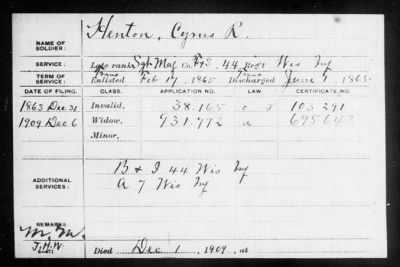 NAME OF SOLDIER: Henton, Cyrus R.
SERVICE: Late rank Sgt Maj Co. F&S, 44 Reg't Wis Inf
TERM OF SERVICE: Trans Enlisted Feb 17, 1865 Trans Discharged June 1, 1865
DATE OF FILING. CLASS. APPLICATION NO. LAW. CERTIFICATE NO.
1863 Dec. 31 Invalid, 38.165 103 291
1909 Dec 6 Widow, 931.772 a 695643
Minor,
ADDITIONAL SERVICES: B & I 44 Wis Inf
A 7 Wis Inf
REMARKS
M.M.
J.H.W.
Died Dec 1, 1909, at